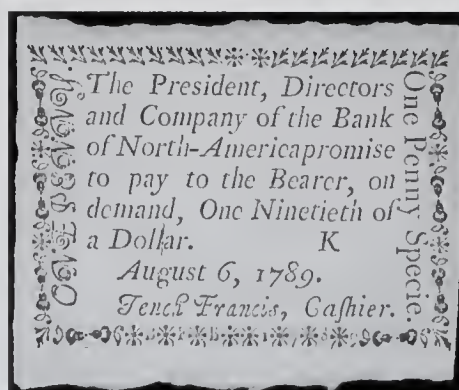 The President, Directors
and Company of the Bank
of North-America promise
to pay to the Bearer, on
demand, One Ninetieth of
a Dollar. K
August 6, 1789.
Tench Francis, Caſhier.
One Penny Specie.